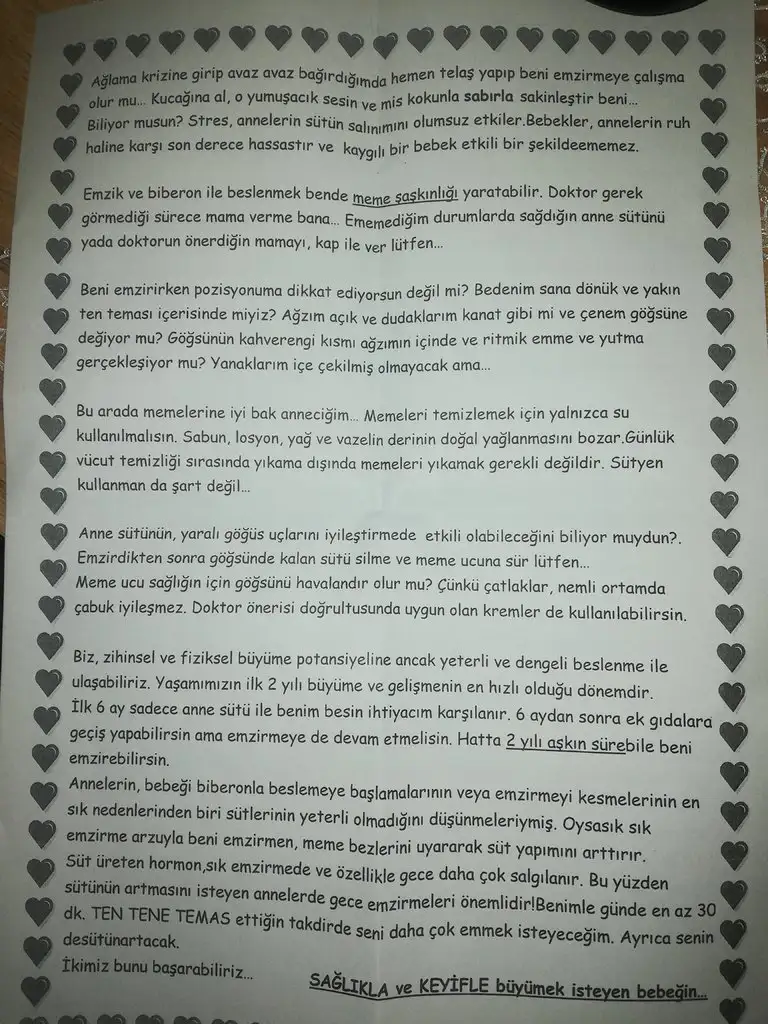 Ağlama krizine girip avaz avaz bağırdığımda hemen telaş yapıp beni emzirmeye çalışma
olur mu... Kucağına al, o yumuşacık sesin ve mis kokunla sabırla sakinleştir beni...
Biliyor musun? Stres, annelerin sütün salınımını olumsuz etkiler.Bebekler, annelerin ruh
haline karşı son derece hassastır ve kaygılı bir bebek etkili bir şekildeememez.
Emzik ve biberon ile beslenmek bende meme şaşkınlığı yaratabilir. Doktor gerek
görmediği sürece mama verme bana... Ememediğim durumlarda sağdığın anne sütünü
yada doktorun önerdiğin mamayı, kap ile ver lütfen...
Beni emzirirken pozisyonuma dikkat ediyorsun değil mi? Bedenim sana dönük ve yakın
ten teması içerisinde miyiz? Ağzım açık ve dudaklarım kanat gibi mi ve çenem göğsüne
değiyor mu? Göğsünün kahverengi kısmı ağzımın içinde ve ritmik emme ve yutma
gerçekleşiyor mu? Yanaklarım içe çekilmiş olmayacak ama...
Bu arada memelerine iyi bak anneciğim... Memeleri temizlemek için yalnızca su
kullanılmalısın. Sabun, losyon, yağ ve vazelin derinin doğal yağlanmasını bozar.Günlük
vücut temizliği sırasında yıkama dışında memeleri yıkamak gerekli değildir. Sütyen
kullanman da şart değil...
Anne sütünün, yaralı göğüs uçlarını iyileştirmede etkili olabileceğini biliyor muydun?.
Emzirdikten sonra göğsünde kalan sütü silme ve meme ucuna sür lütfen...
Meme ucu sağlığın için göğsünü havalandır olur mu? Çünkü çatlaklar, nemli ortamda
çabuk iyileşmez. Doktor önerisi doğrultusunda uygun olan kremler de kullanılabilirsin.
Biz, zihinsel ve fiziksel büyüme potansiyeline ancak yeterli ve dengeli beslenme ile
ulaşabiliriz. Yaşamımızın ilk 2 yılı büyüme ve gelişmenin en hızlı olduğu dönemdir.
İlk 6 ay sadece anne sütü ile benim besin ihtiyacım karşılanır. 6 aydan sonra ek gıdalara
geçiş yapabilirsin ama emzirmeye de devam etmelisin. Hatta 2 yılı aşkın sürebile beni
emzirebilirsin.
Annelerin, bebeği biberonla beslemeye başlamalarının veya emzirmeyi kesmelerinin en
sık nedenlerinden biri sütlerinin yeterli olmadığını düşünmeleriymiş. Oysasık sık
emzirme arzuyla beni emzirmen, meme bezlerini uyararak süt yapımını arttırır.
Süt üreten hormon,sık emzirmede ve özellikle gece daha çok salgılanır. Bu yüzden
sütünün artmasını isteyen annelerde gece emzirmeleri önemlidir!Benimle günde en az 30
dk. TEN TENE TEMAS ettiğin takdirde seni daha çok emmek isteyeceğim. Ayrıca senin
desütünartacak.
İkimiz bunu başarabiliriz...
SAĞLIKLA ve KEYİFLE büyümek isteyen bebeğin...